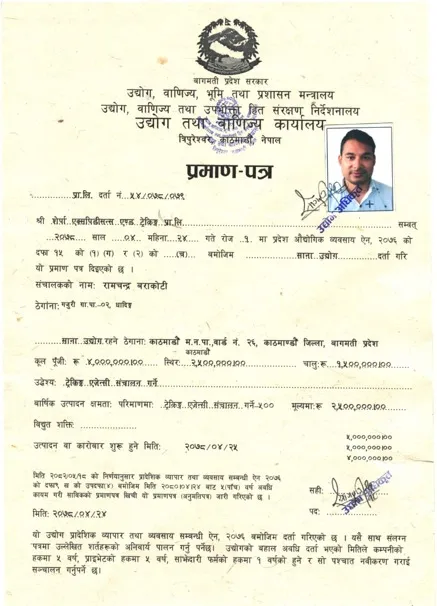 बागमती प्रदेश सरकार
उद्योग, वाणिज्य, भूमि तथा प्रशासन मन्त्रालय
उद्योग, वाणिज्य तथा उपभोक्ता हित संरक्षण निर्देशनालय
उद्योग तथा वाणिज्य कार्यालय
त्रिपुरेश्वर, काठमाडौं, नेपाल
प्रमाण-पत्र
प्रा.लि. दर्ता नं. ५४/०७८/०७९
श्री शेर्पा एक्सपिडीसन्स एण्ड ट्रेकिङ्ग प्रा.लि. सम्वत्
२०७८ साल ०४ महिना २४ गते रोज १ मा प्रदेश औद्योगिक व्यवसाय ऐन, २०७६ को
दफा १५ को (१) (ग) र (२) को (ख) बमोजिम साना उद्योग दर्ता गरि
यो प्रमाण पत्र दिइएको छ ।
संचालकको नाम: रामचन्द्र बराकोटी
ठेगाना: गजुरी गा.पा.-०२, धादिङ्ग
साना उद्योग रहने ठेगाना: काठमाडौं म.न.पा., वार्ड नं. २६, काठमाण्डौ जिल्ला, बागमती प्रदेश
काठमाडौं
कूल पूँजी: रू ४,०००,०००।०० स्थिर: २,५००,०००।०० चालु: रू १,५००,०००।००
उद्धेश्य: ट्रेकिङ्ग एजेन्सी संचालन गर्ने
बार्षिक उत्पादन क्षमता: परिमाणमा: ट्रेकिङ्ग एजेन्सी संचालन गर्ने-५०० मूल्यमा: रू २,५००,०००।००
विद्युत शक्ति:
५,०००,०००।००
उत्पादन वा कारोबार शुरू हुने मिति: २०७८/०४/२५ ५,०००,०००।००
४,०००,०००।००
को निर्णयानुसार प्रादेशिक व्यापार तथा व्यवसाय सम्बन्धी ऐन २०७६
बमोजिम मिति बाट ५(पाँच) वर्ष अवधि
कायम गरी साविकको प्रमाणपत्र यो प्रमाणपत्र (अनुमतिपत्र) जारी गरिएको छ ।
सही:
मिति: २०७८/०४/२४ पद:
यो उद्योग प्रादेशिक व्यापार तथा व्यवसाय सम्बन्धी ऐन, २०७६ बमोजिम दर्ता गरिएको छ । यसै साथ संलग्न
पत्रमा उल्लेखित शर्तहरूको अनिवार्य पालन गर्नु पर्नेछ। उद्योगको बहाल अवधि दर्ता भएको मितिले कम्पनीको
हकमा ५ वर्ष, प्राइभेटको हकमा ५ वर्ष, साझेदारी फर्मको हकमा १ वर्षको हुने र सो पश्चात नवीकरण गराई
सञ्चालन गर्नुपर्ने छ।